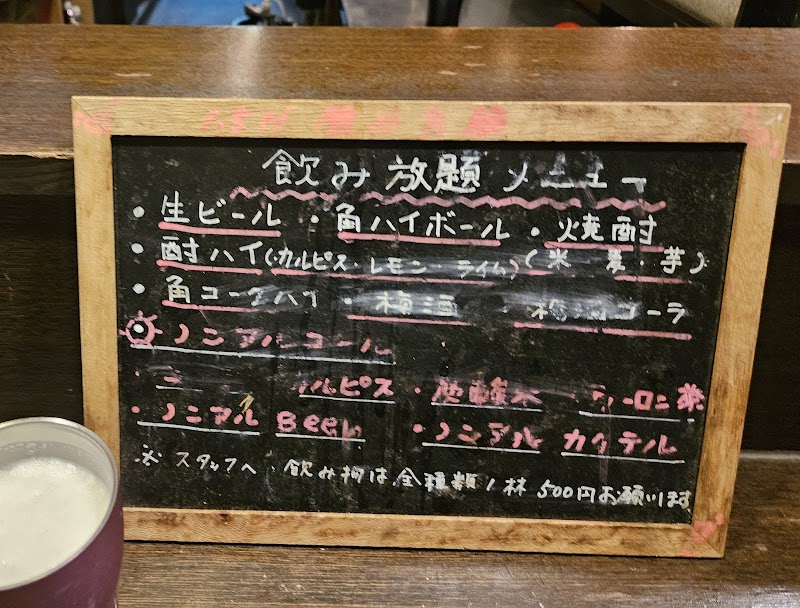 飲み放題メニュー
・生ビール ・角ハイボール ・焼酎
・酎ハイ(カルピス・レモン ライム) (米 麦・芋)
・角コークハイ ・梅酒 梅酒コーラ
ノンアルコール
カルピス ・炭酸水 ウーロン茶
・ノンアル Beer ・ノンアル カクテル
※ スタッフへ 飲み物は全種類1杯500円お願います